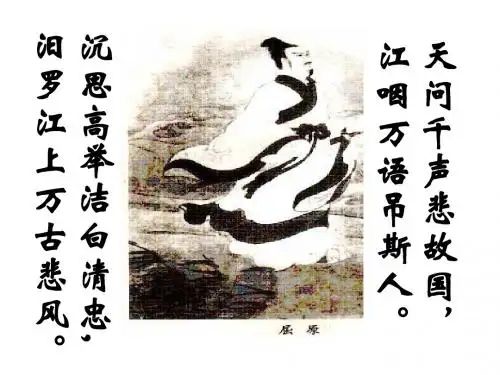 天问千声悲故国，
江咽万语吊斯人。
沉思高举洁白清忠，
汨罗江上万古悲风。
屈原